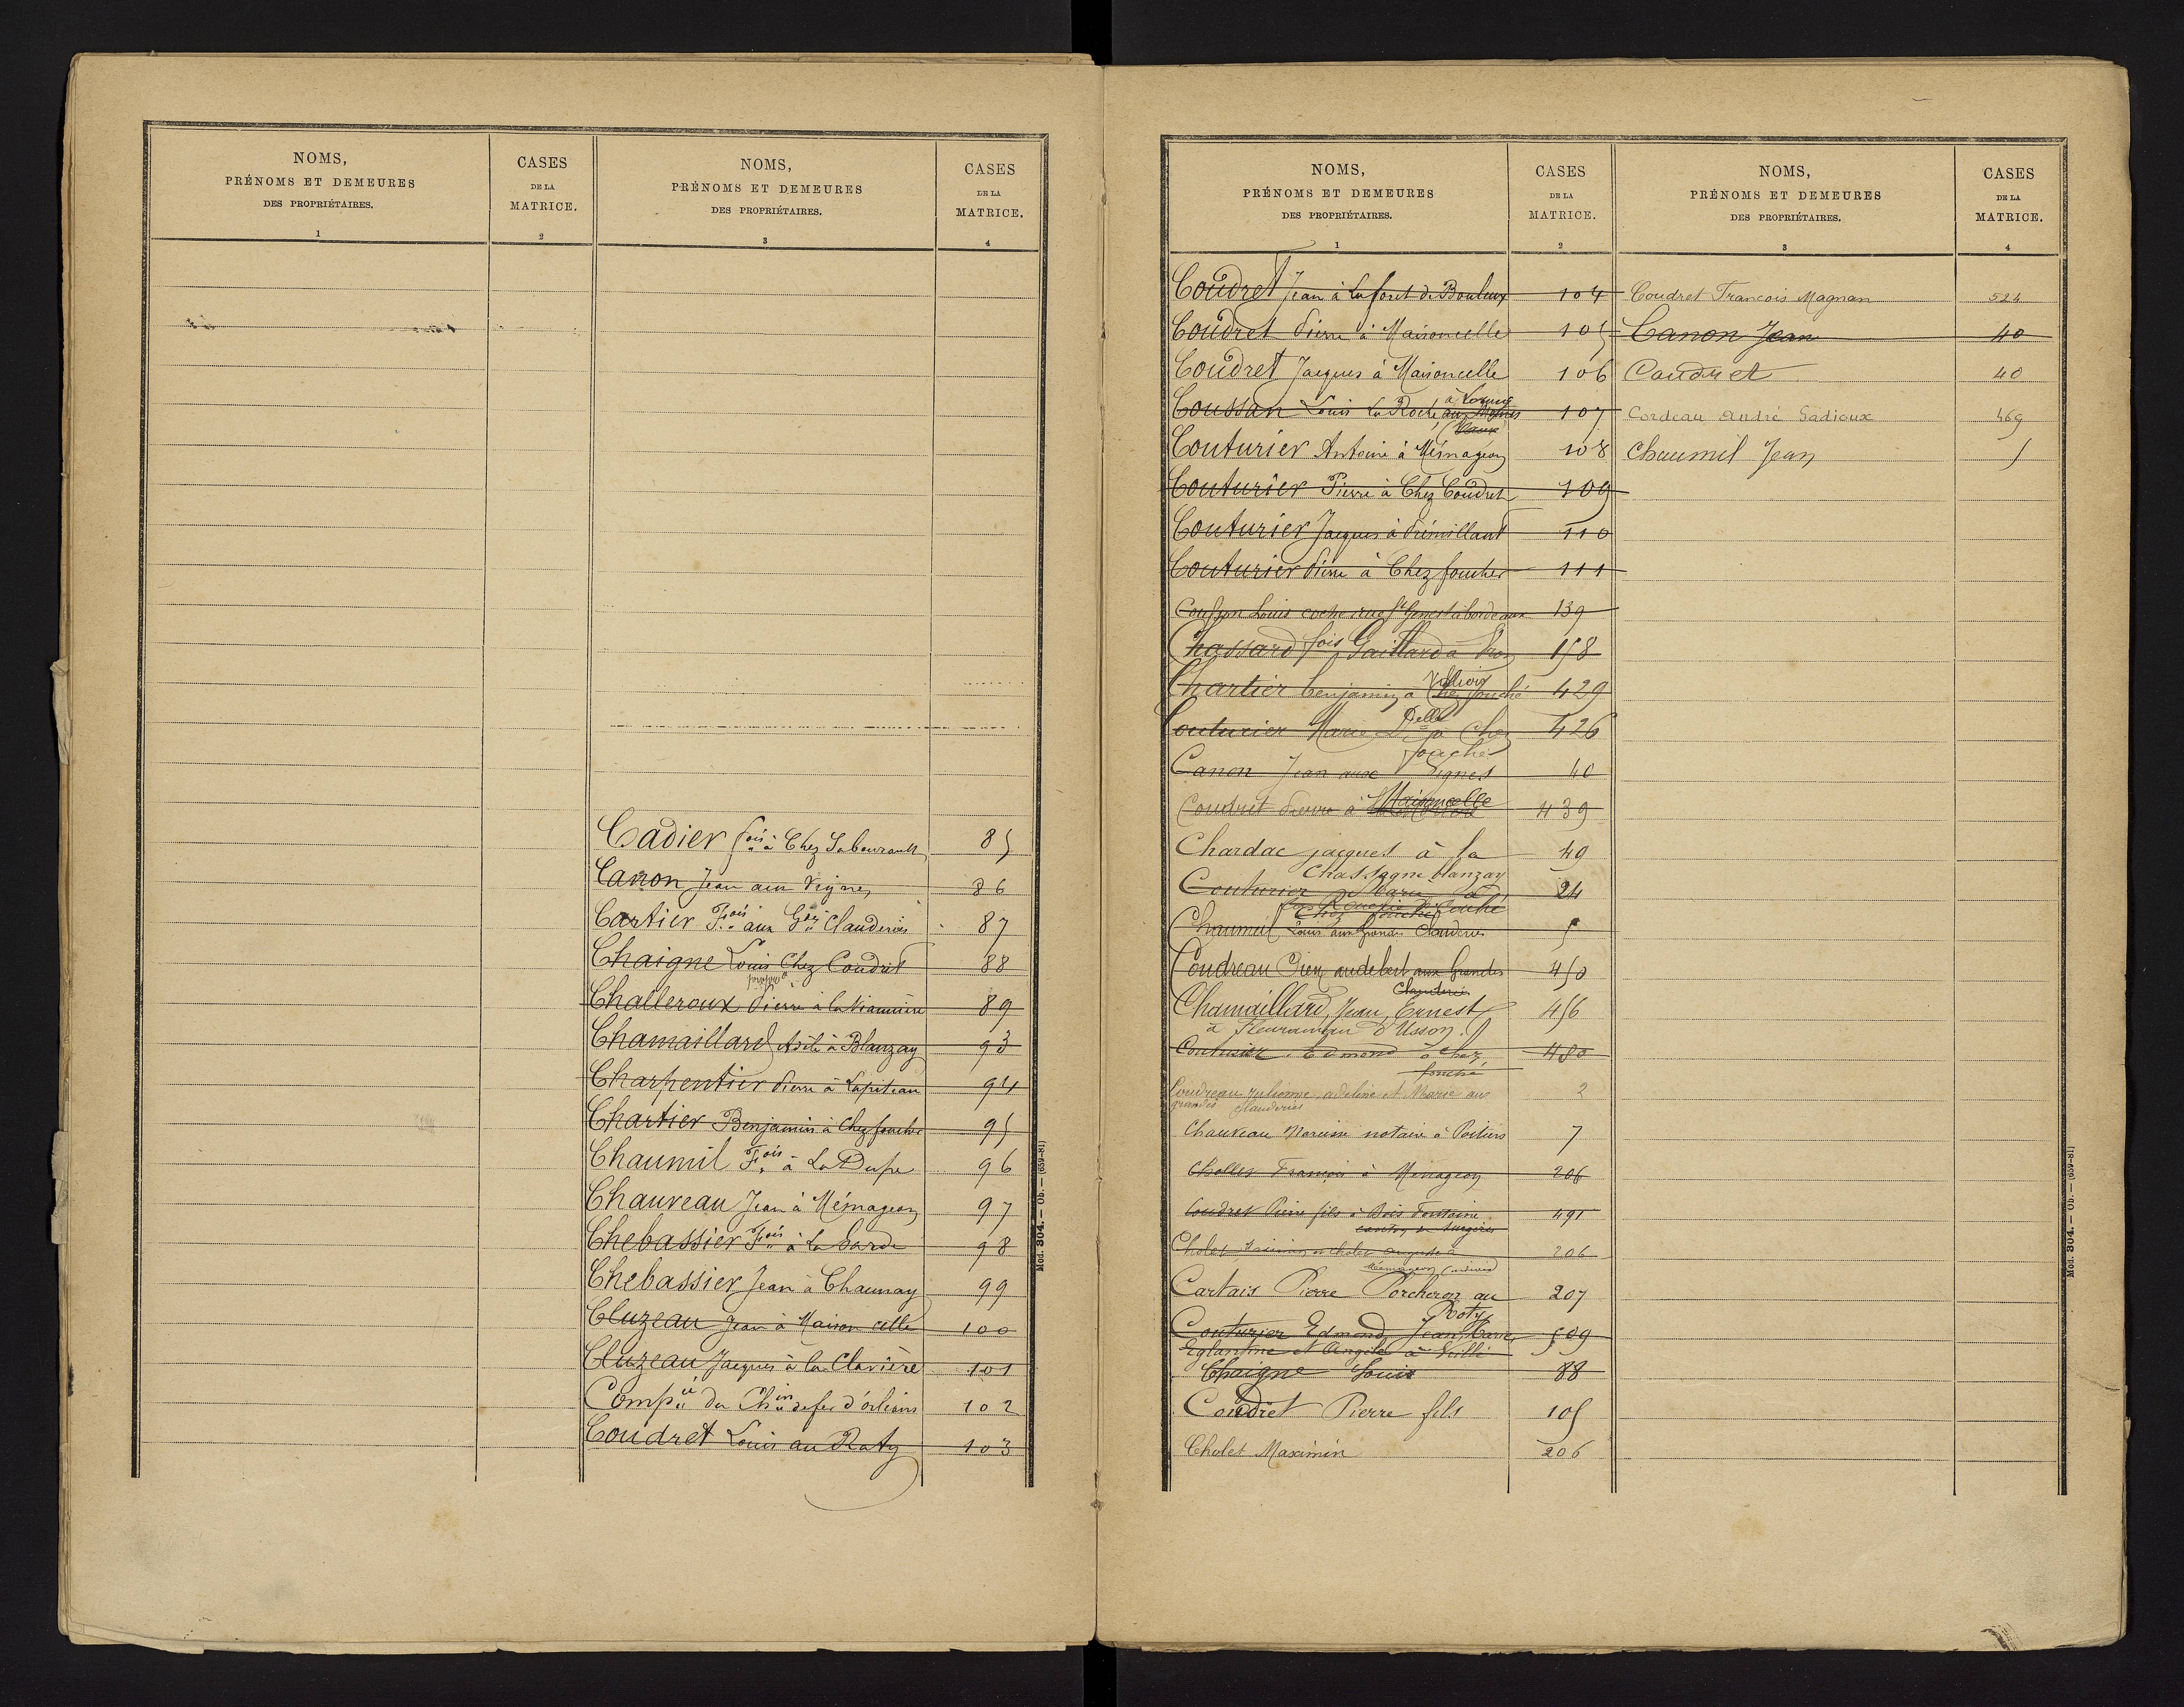 NOMS,
PRÉNOMS ET DEMEURES
DES PROPRIÉTAIRES.
1
CASES
DE LA
MATRICE.
2
NOMS,
PRÉNOMS ET DEMEURES
DES PROPRIÉTAIRES.
3
CASES
DE LA
MATRICE.
4
Cadier fois à Chez Sabourault 85
Canon Jean aux Vignes 86
Cartier Fois aux Gdes Clauderies 87
Chaigne Louis Chez Coudret 88
Challeroux Pierre à la 89
Chamaillard à Blanzay 93
Charpentier Pierre à Lapiteau 94
Chartier Benjamin à Chez fouché 95
Chaumil Fois à La Dupe 96
Chauveau Jean à Mémageon 97
Chebassier Fois à La Barde 98
Chebassier Jean à Chaunay 99
Cluzeau Jean à Maison celle 100
Cluzeau Jacques à la Clavière 101
Compie du Chin de fer d'orléans 102
Coudret Louis au Raty 103
Mod. 304. — Ob. — (659-81)
NOMS,
PRÉNOMS ET DEMEURES
DES PROPRIÉTAIRES.
1
CASES
DE LA
MATRICE.
2
NOMS,
PRÉNOMS ET DEMEURES
DES PROPRIÉTAIRES.
3
CASES
DE LA
MATRICE.
4
Coudret Jean à La foret de Bouleux 104
Coudret Pierre à Maisoncelle 105
Coudret Jacques à Maisoncelle 106
Coussan Louis La Roche 107
Couturier Antoine à Mémageon 108
Couturier Pierre à Chez Coudret 109
Couturier Jacques à 110
Couturier Pierre à Chez foucher 111
Louis coche rue St Genest à bordeaux 139
Chassard fois Gaillard à 158
Chartier benjamin à Chez fouché 429
Couturier Marie Delle à Chez 426
fouché
Canon Jean aux Vignes 40
Coudret Pierre à Maisoncelle 439
Chardac jacques à la 49
Chassagne blanzay
Couturier Marie à 24
Chez fouché
Chaumil Louis aux Grandes Clauderies 5
Coudreau audebert aux Grandes 450
Clauderies
Chamaillard, Jean, Ernest 456
à d'Usson.
Couturier Edmond à Chez 480
fouché
Coudreau adeline et Marie aux 2
grandes Clauderies
Chauveau Narcisse notaire à Poitiers 7
Chollet François à Mémageon 206
Coudret Pierre fils à Bois Fontaine 491
canton de Surgères
Cholet et Cholet Auguste à 206
Mémageon
Cartais Pierre Porcheron au 207
Roty
Couturier Edmond, Jean, Marie, 509
Eglantine et Angèle à
Chaigne Louis 88
Coudret Pierre fils 105
Cholet Maximin 206
Coudret François Magnan 524
Canon Jean 40
Coudret 40
Cordeau André Sadioux 469
Chaumil Jean 5
Mod. 304. — Ob. — (659-81)